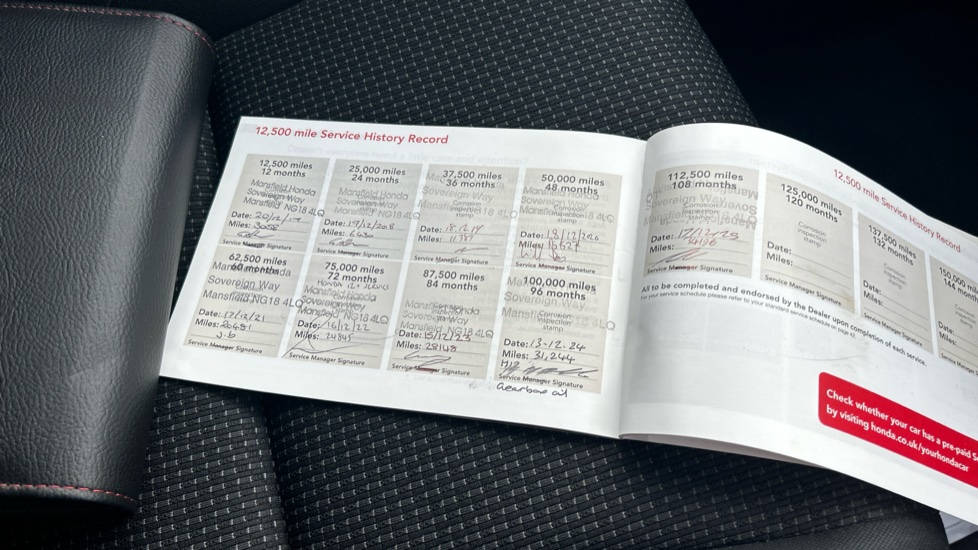 12,500 mile Service History Record
12,500 miles
12 months
Mansfield Honda
Sovereign Way
Mansfield NG18 4LQ
Date: 20/12/17
Miles: 3058
Service Manager Signature
25,000 miles
24 months
Mansfield Honda
Sovereign Way
Mansfield NG18 4LQ
Date: 19/12/2018
Miles:
Service Manager Signature
37,500 miles
36 months
Sovereign Way
Corrosion
inspection
stamp
Date: 18.12.19
Miles:
Service Manager Signature
50,000 miles
48 months
Mansfield Honda
Sovereign Way
Date: 18/12/2020
Miles: 16627
Service Manager Signature
62,500 miles
60 months
Sovereign Way
Mansfield NG18 4LQ
Date: 17/12/21
Miles: 20481
J.b
Service Manager Signature
75,000 miles
72 months
Mansfield Honda
Sovereign Way
Mansfield NG18 4LQ
Date: 16/12/22
Miles: 24845
Service Manager Signature
87,500 miles
84 months
Mansfield Honda
Sovereign Way
Mansfield NG18 4LQ
Date: 15/12/23
Miles: 28148
Service Manager Signature
100,000 miles
96 months
Sovereign Way
Corrosion
inspection
stamp
Date: 13-12-24
Miles: 31,244
Service Manager Signature
Gearbox oil
112,500 miles
108 months
Sovereign Way
Date: 17/12/25
Miles: 34196
Service Manager Signature
12,500 mile Service History Record
125,000 miles
120 months
Corrosion
inspection
stamp
Date:
Miles:
Service Manager Signature
137,500 miles
132 months
Corrosion
inspection
stamp
Date:
Miles:
Service Manager Signature
150,000
144
Date:
Miles:
Service
All to be completed and endorsed by the Dealer upon completion of each service.
For your service schedule please refer to your standard service schedule on page 42.
Check whether your car has a pre-paid
by visiting honda.co.uk/yourhondacar